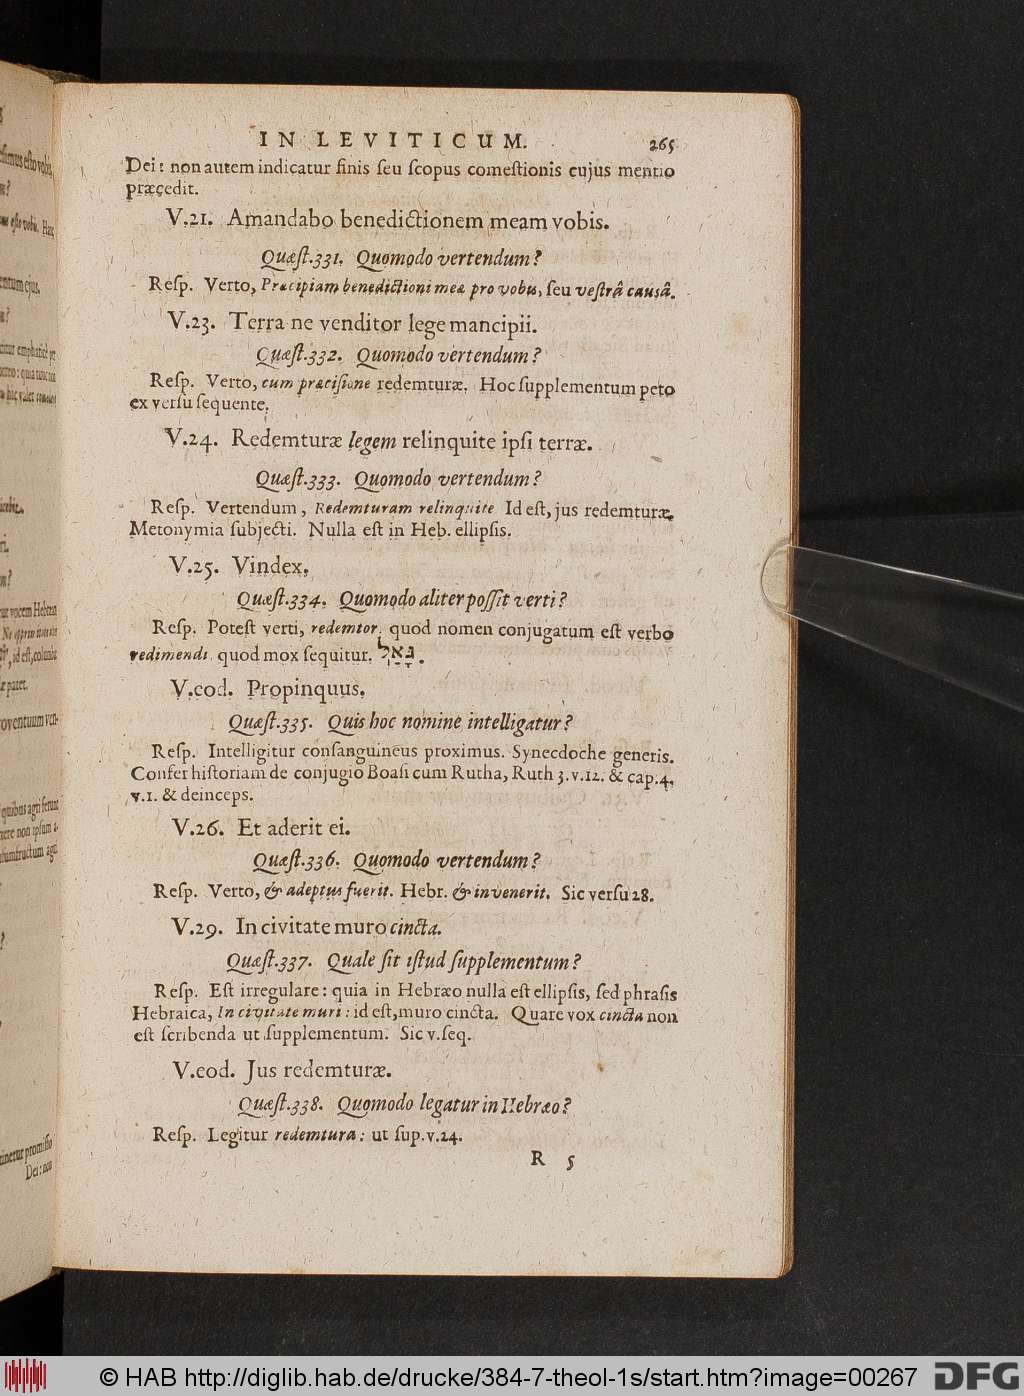 IN LEVITICUM. 265
Dei: non autem indicatur finis seu scopus comestionis cujus mentio
præcedit.
V.21. Amandabo benedictionem meam vobis.
Quæst.331. Quomodo vertendum?
Resp. Verto, Præcipiam benedictioni mea pro vobis, seu vestrâ causâ.
V.23. Terra ne venditor lege mancipii.
Quæst.332. Quomodo vertendum?
Resp. Verto, cum præcisione redemturæ. Hoc supplementum peto
ex versu sequente.
V.24. Redemturæ legem relinquite ipsi terræ.
Quæst.333. Quomodo vertendum?
Resp. Vertendum, Redemturam relinquite Id est, jus redemturæ.
Metonymia subjecti. Nulla est in Heb. ellipsis.
V.25. Vindex.
Quæst.334. Quomodo aliter possit verti?
Resp. Potest verti, redemtor, quod nomen conjugatum est verbo
redimendi, quod mox sequitur. גָּאַל.
V.eod. Propinquus.
Quæst.335. Quis hoc nomine intelligatur?
Resp. Intelligitur consanguineus proximus. Synecdoche generis.
Confer historiam de conjugio Boasi cum Rutha, Ruth 3.v.12. & cap.4.
v.1. & deinceps.
V.26. Et aderit ei.
Quæst.336. Quomodo vertendum?
Resp. Verto, & adeptus fuerit. Hebr. & invenerit. Sic versu 28.
V.29. In civitate muro cincta.
Quæst.337. Quale sit istud supplementum?
Resp. Est irregulare: quia in Hebræo nulla est ellipsis, sed phrasis
Hebraica, In civitate muri: id est, muro cincta. Quare vox cincta non
est scribenda ut supplementum. Sic v.seq.
V.eod. Jus redemturæ.
Quæst.338. Quomodo legatur in Hebræo?
Resp. Legitur redemtura: ut sup.v.24.
R 5
© HAB http://diglib.hab.de/drucke/384-7-theol-1s/start.htm?image=00267
DFG